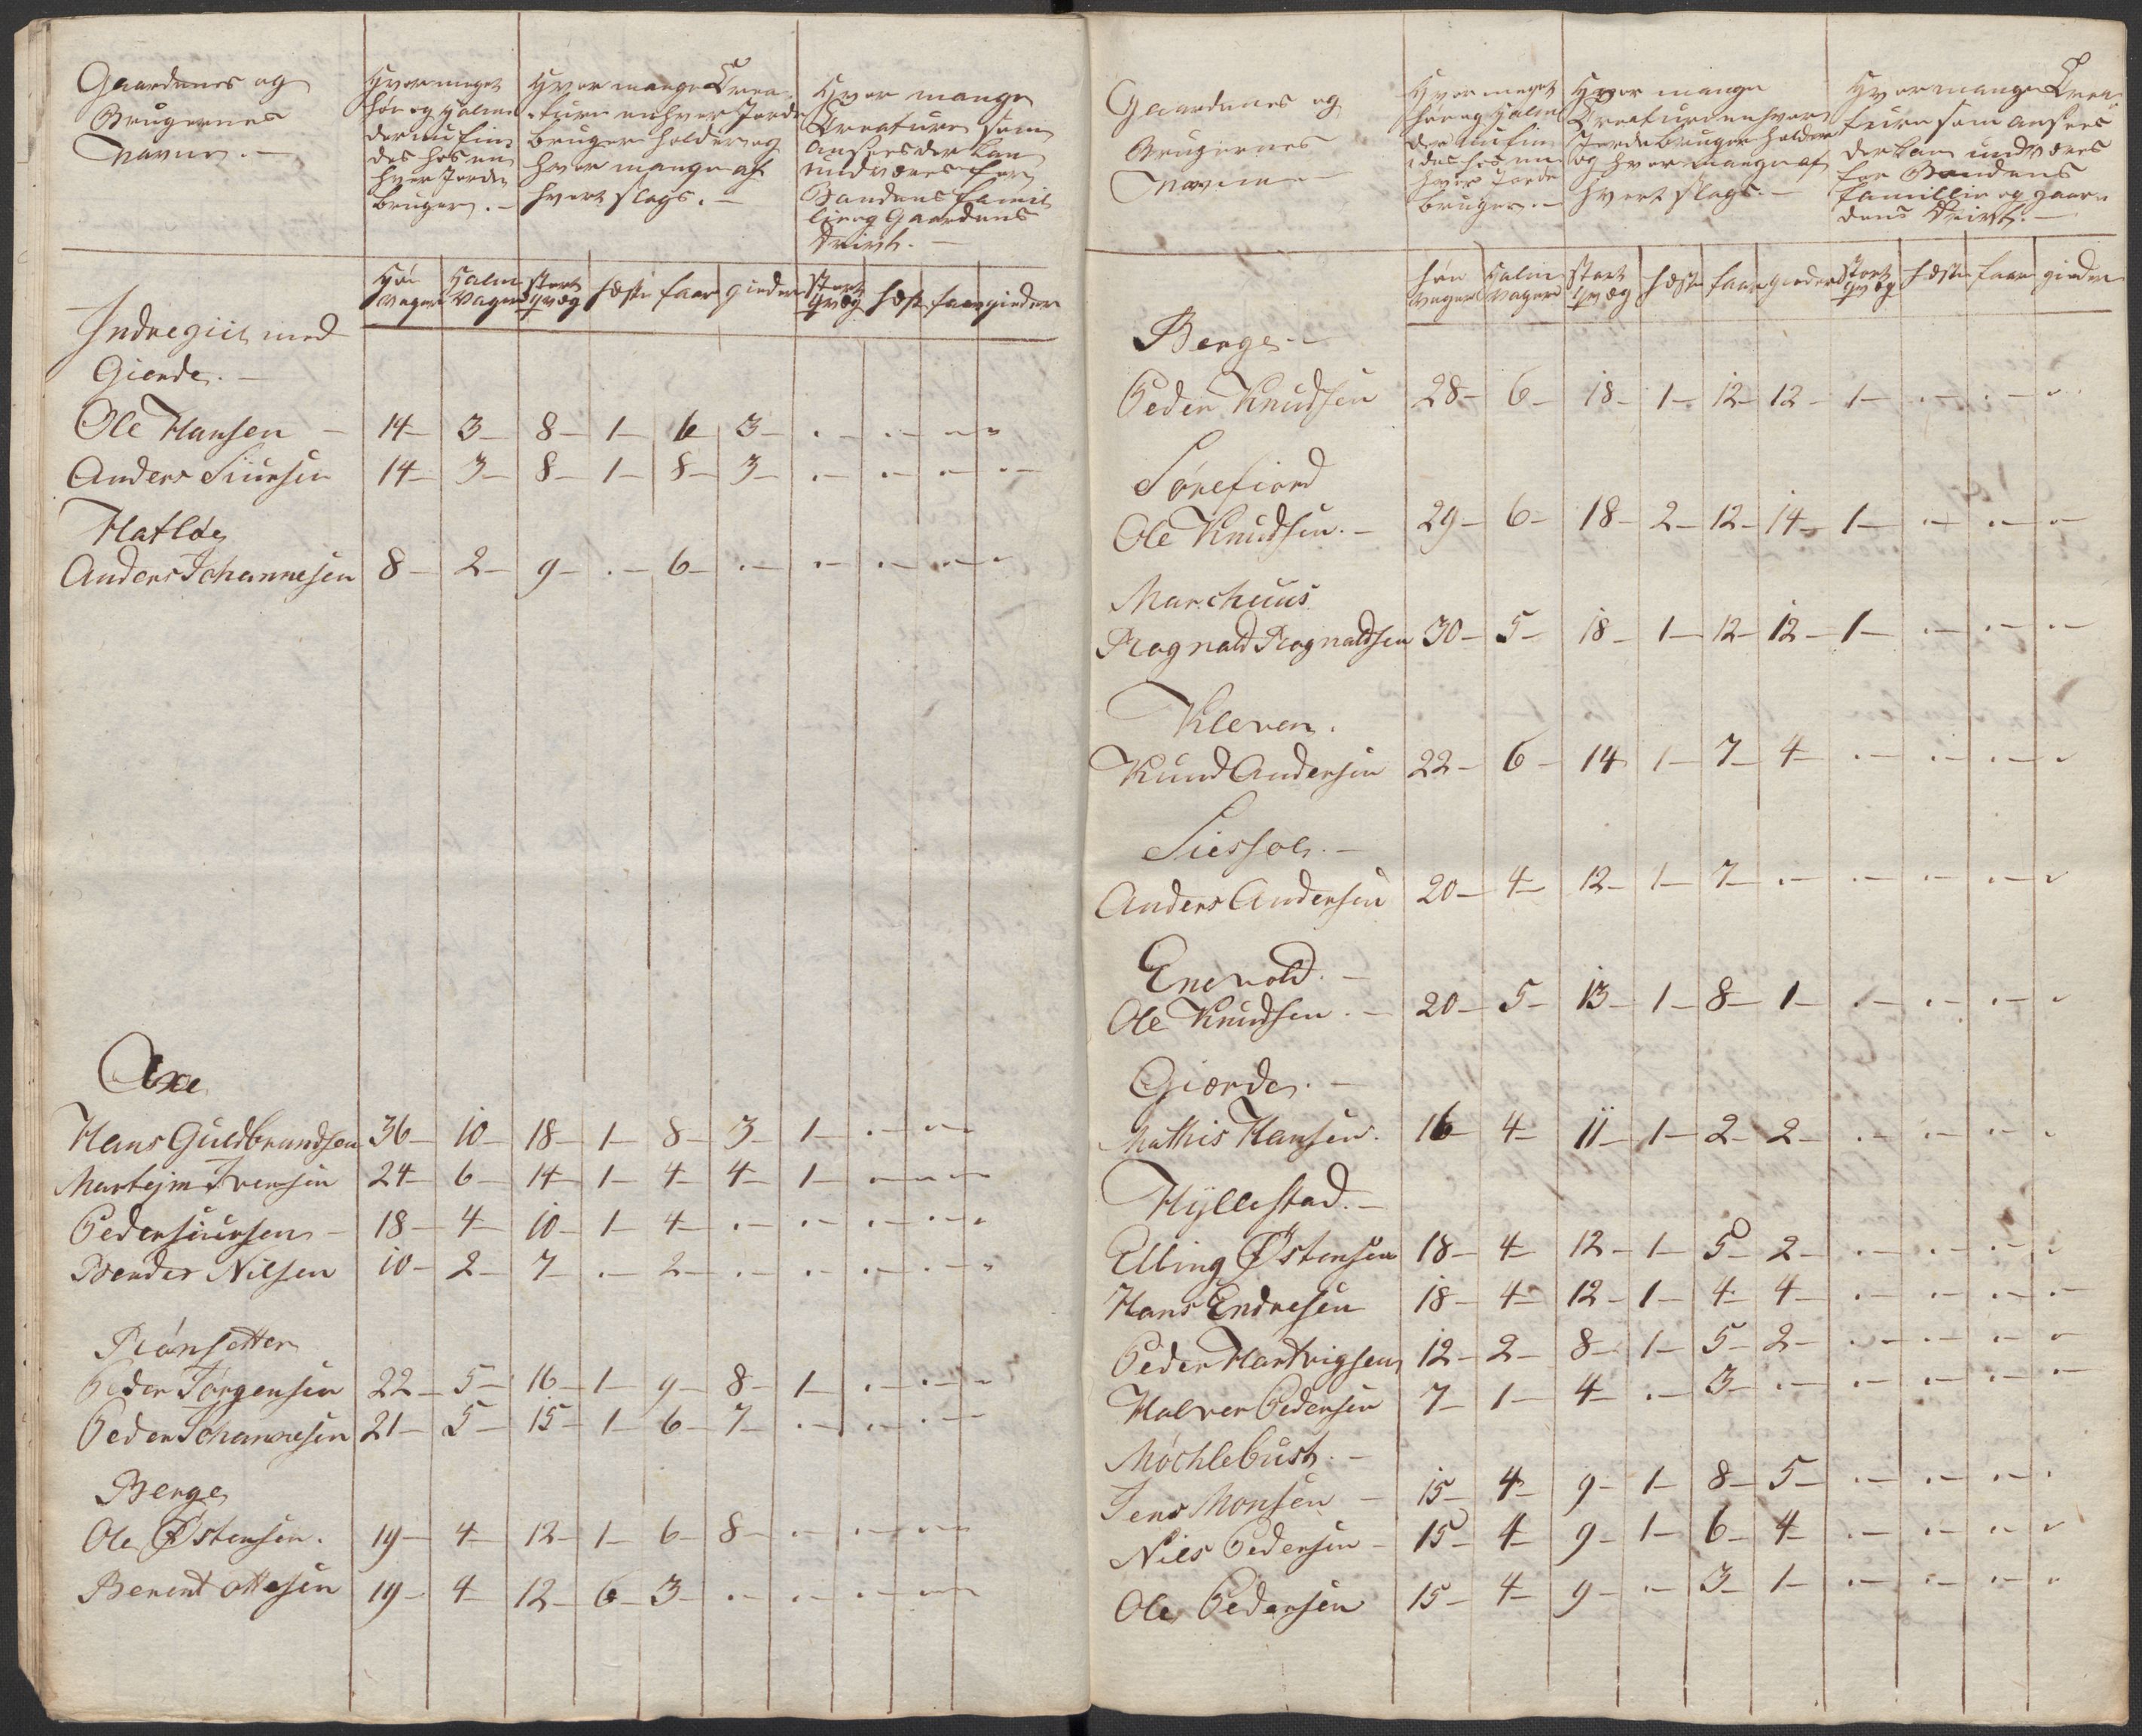 Gaardenes og
Brugernes
Navne. -
Hvor meget
Høe og Halm
der nu fin
des hos en
hver Jorde
bruger. -
Hvor mange Crea-
ture enhver Jorde
bruger holder og
hvor mange af
hvert slags. -
Hvor mange
Creature som
ansees der kan
undværes for
Bondens famil
lie og Gaardens
Drivt. -
Høe Vager Halm Vager stort qvæg hæste faar gieder stort qvæg hæst faar gieder
Indregiil med
Gierde. -
Ole Hansen - 14- 3- 8- 1- 6 3- .- .- - "
Anders Siursen 14- 3- 8- 1- 8- 3- .- .- .- .-
Hatløe
Anders Johannesen 8- 2- 9- .- 6- .- .- .- .- -
Axe
Hans Guldbrandsen 36- 10- 18- 1- 8- 3- 1- .- .- -
Martejm Iversen 24- 6- 14- 1- 4- 4- 1- .- - -
Peder Siursen - 18- 4- 10- 1- 4- .- .- .- .- .
Bender Nilsen 10- 2- 7- .- 2- .- .- .- .- "
Rønsetter
Peder Jørgensen 22- 5- 16- 1- 9- 8- 1- .- .- -
Peder Johannesen 21- 5- 15- 1- 6- 7- .- .- .- -
Berge
Ole Østensen. 19- 4- 12- 1- 6- 8- .- .- .- -
Berent Ottesen 19- 4- 12- 6- 3- .- .- .- - -
Gaardenes og
Brugernes
Navne -
Hvor meget
høe og Halm
der nu fin
des hos en
hver Jorde
bruger. -
Hvor mange
Creature enhver
Jordebruger holder
og hvor mange af
hvert slags. -
Hvor mange Crea
ture som ansees
der kan undværes
for Bondens
famillie og gaar
dens Drivt. -
høe vager Halm vager stort qvæg hæste faar gieder stort qvæg hæste faar gieder
Berge -
Peder Knudsen 28- 6- 18- 1- 12- 12- 1- .- .- -
Sørefiord
Ole Knudsen. - 29- 6- 18- 2- 12- 14- 1- .- .- -
Marchuus
Rognald Rognaldsen 30- 5- 18- 1- 12- 12- 1- .- .- .-
Kleven.
Knud Andersen 22- 6- 14 1- 7- 4- .- .- .- -
Siessol. -
Anders Andersen 20- 4- 12- 1- 7- .- .- .- .- -
Enevold. -
Ole Knudsen. - 20- 5- 13- 1- 8- 1- .- .- .- -
Giorde. -
Mathis Hansen. 16- 4- 11- 1- 2- 2- .- .- .- .
Hÿllestad. -
Elling Østensen 18- 4- 12- 1- 5- 2- .- .- .- .
Hans Endresen 18- 4- 12- 1- 4- 4- .- .- .- .-
Peder Hartvigsen 12- 2- 8- 1- 5- 2- .- .- .- -
Halver Pedersen 7- 1- 4- .- 3- .- .- .- .- .-
Møchlebust. -
Jens Monsen - 15- 4- 9- 1- 8- 5- .- .- .- .
Nils Pedersen - 15- 4- 9- 1- 6- 4- .- .- .- -
Ole Pedersen 15- 4- 9- .- 3- 1- .- .- .- "